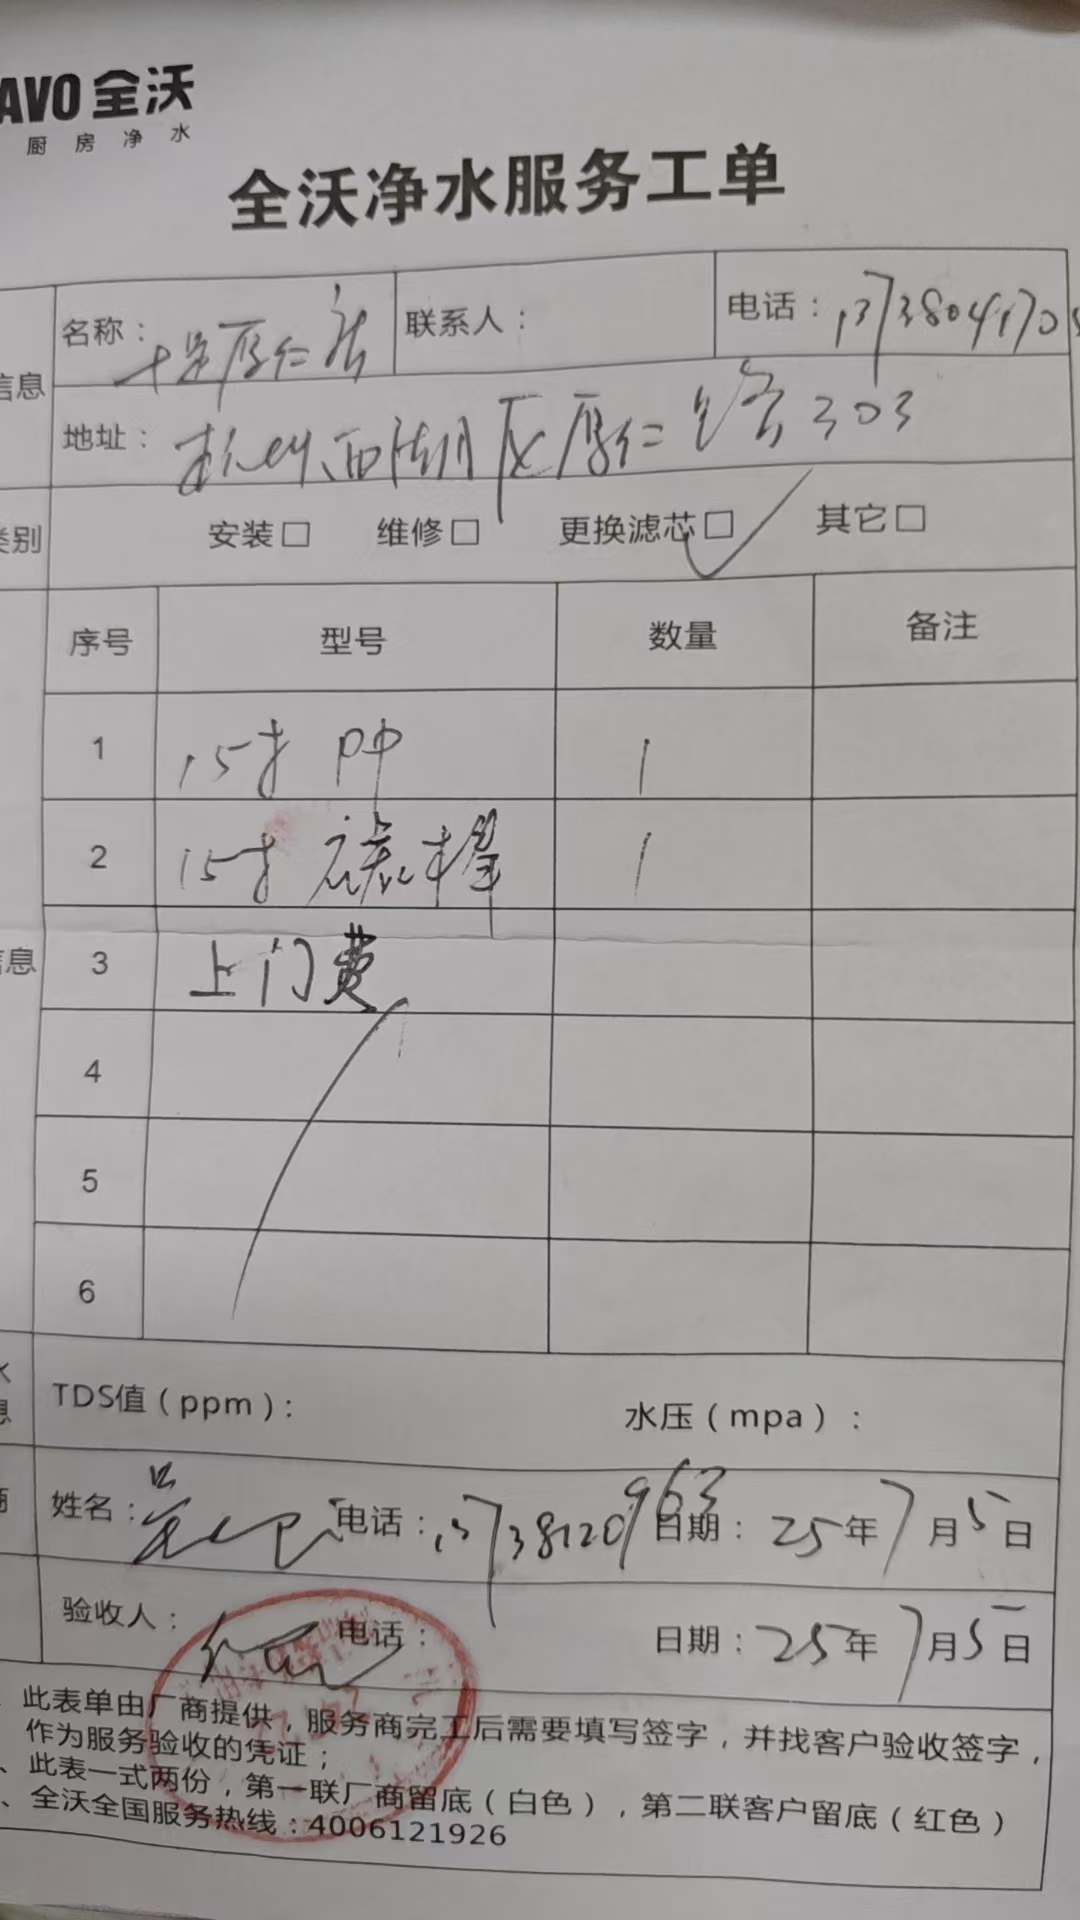 AVO 全沃
厨房净水
全沃净水服务工单
信息
名称：厚仁 联系人： 电话：1373804170
地址：杭州西湖区厚仁路303
类别 安装□ 维修□ 更换滤芯□✓ 其它□
序号 型号 数量 备注
1 15寸 PP 1
2 15寸 碳棒 1
信息 3 上门费
4
5
6
TDS值（ppm）： 水压（mpa）：
姓名： 电话：13738120963 日期：25年7月5日
验收人： 电话： 日期：25年7月5日
此表单由厂商提供，服务商完工后需要填写签字，并找客户验收签字，
作为服务验收的凭证；
、此表一式两份，第一联厂商留底（白色），第二联客户留底（红色）
、全沃全国服务热线：4006121926